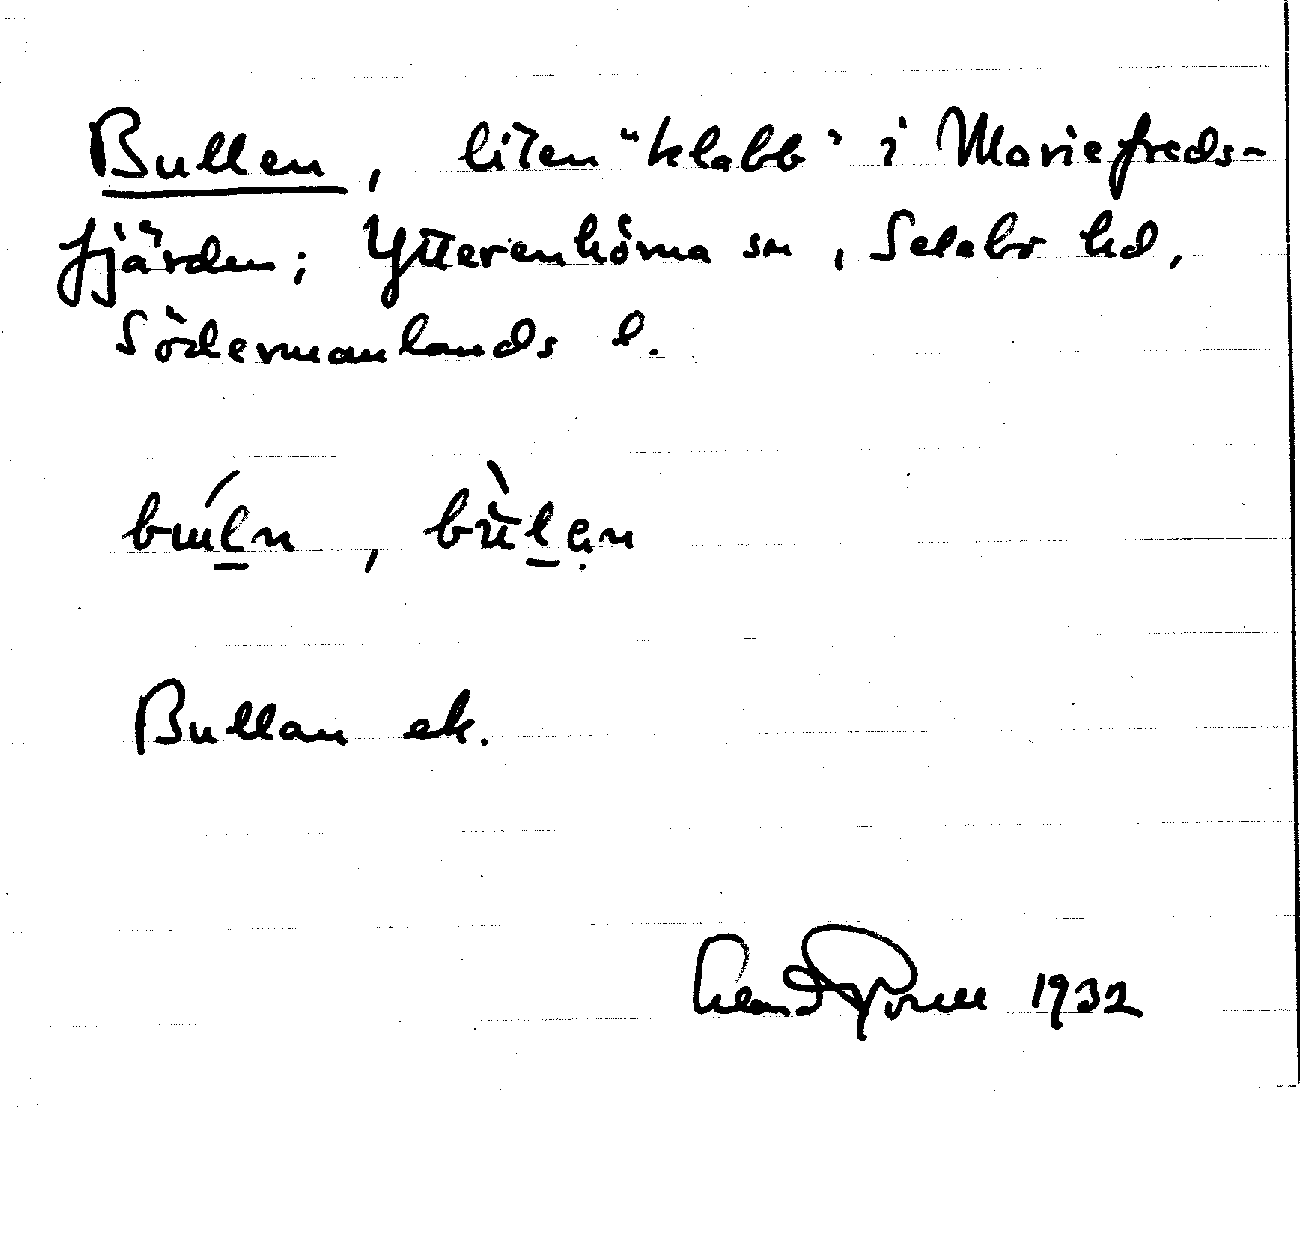 Bullen, liten "klabb" i Mariefreds-
fjärden; Ytterenhörna sn, Selebo hd,
Södermanlands l.
bul̲n, bùl̲ạn
Bullan ek.
1932